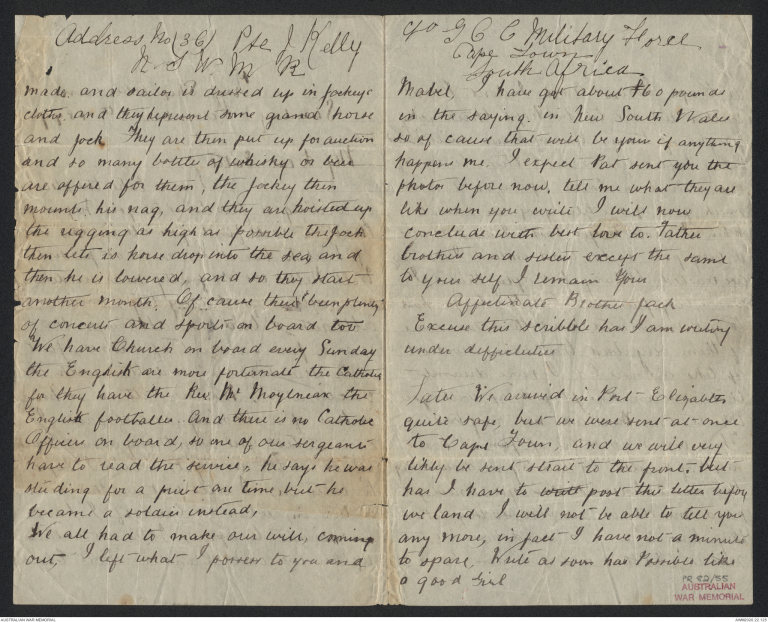 Address No (36) Pte J Kelly
N S W M R
made, and sailor is dressed up in jockeys
clothes, and they represent some grand horse
and jock. They are then put up for auction
and so many bottles of whisky or beer
are offered for them, the jockey then
mounts his nag, and they are hoisted up
the rigging as high as possible the jock
then lets is horse drop into the sea, and
then he is lowered, and so they start
another month. Of cause there's been plenty
of concerts and sports on board too
We have Church on board every Sunday
the English are more fortunate the Catholic
for they have the Rev. Mr Moylneax the
English footballer. And there is no Catholic
Officer on board, so one of our sergeants
have to read the service, he says he was
studing for a priest one time, but he
became a soldier instead,
We all had to make our wills, coming
out, I left what I possess to you and
c/o G C C Military Force
Cape Town
South Africa
Mabel, I have got about £60 pounds
in the saying. in New South Wales
so of cause that will be your if anything
happens me. I expect Pat sent you the
photos before now, tell me what they are
like when you write I will now
conclude with best love to. Father
brother and sister except the same
to your self I remain Your
Affectinate Brother Jack
Excuse this scribble has I am writing
under difficulties
Later We arrived in Port Elizabeth
quite safe, but we were sent at once
to Cape Town, and we will very
likly be sent strait to the front, but
has I have to writt post this letter before
we land I will not be able to tell you
any more, in fact I have not a minute
to spare, Write as soon has Possible like
a good Girl
PR 82/55
AUSTRALIAN
WAR MEMORIAL
AUSTRALIAN WAR MEMORIAL